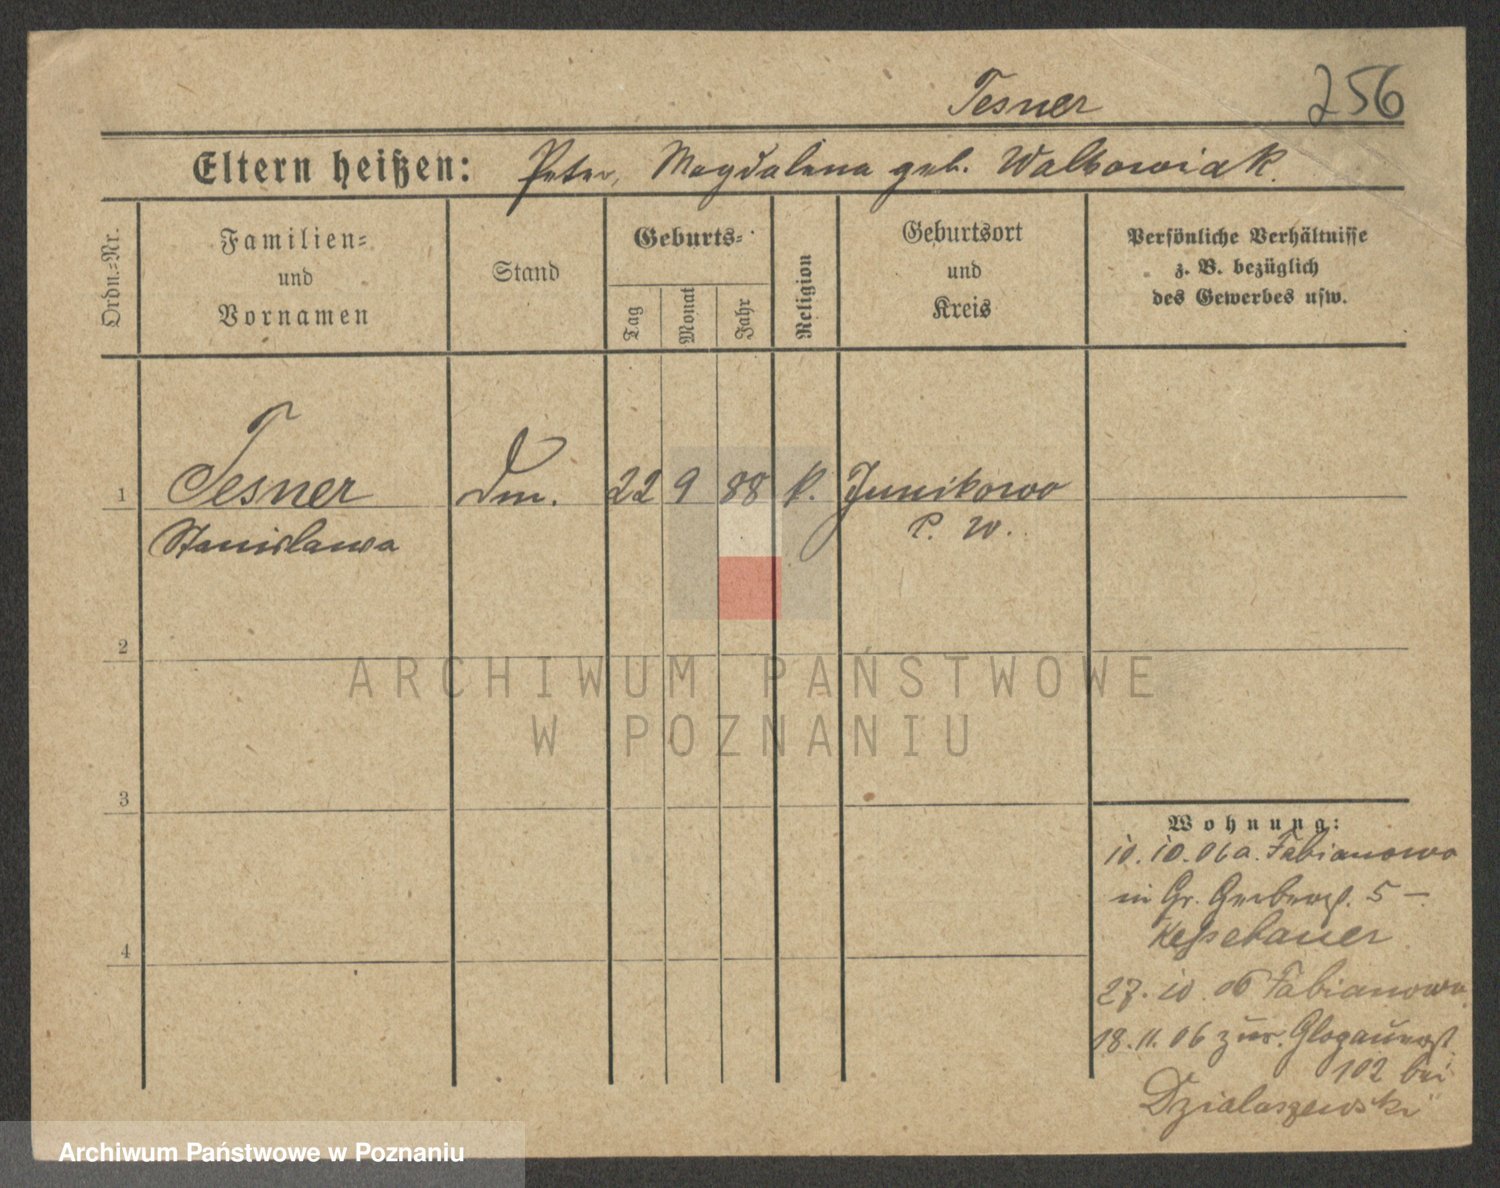 Tesner 256
Eltern heißen: Peter, Magdalena geb. Walkowiak.
Ordn.=Nr.
Familien= und Vornamen
Stand
Geburts=
Tag
Monat
Jahr
Religion
Geburtsort und Kreis
Persönliche Verhältnisse
z. B. bezüglich
des Gewerbes usw.
1 Tesner Dm. 22 9 88 k. Junikowo
Stanislawa P. W.
2
ARCHIWUM PAŃSTWOWE
W POZNANIU
3
Wohnung:
10. 10. 06 a. Fabianowo
in Gr. Gerberst. 5 –
27. 10 06 Fabianowo
18. 11. 06 zur. Glogauerst.
102 bei
Dzialaszewski
4
Archiwum Państwowe w Poznaniu